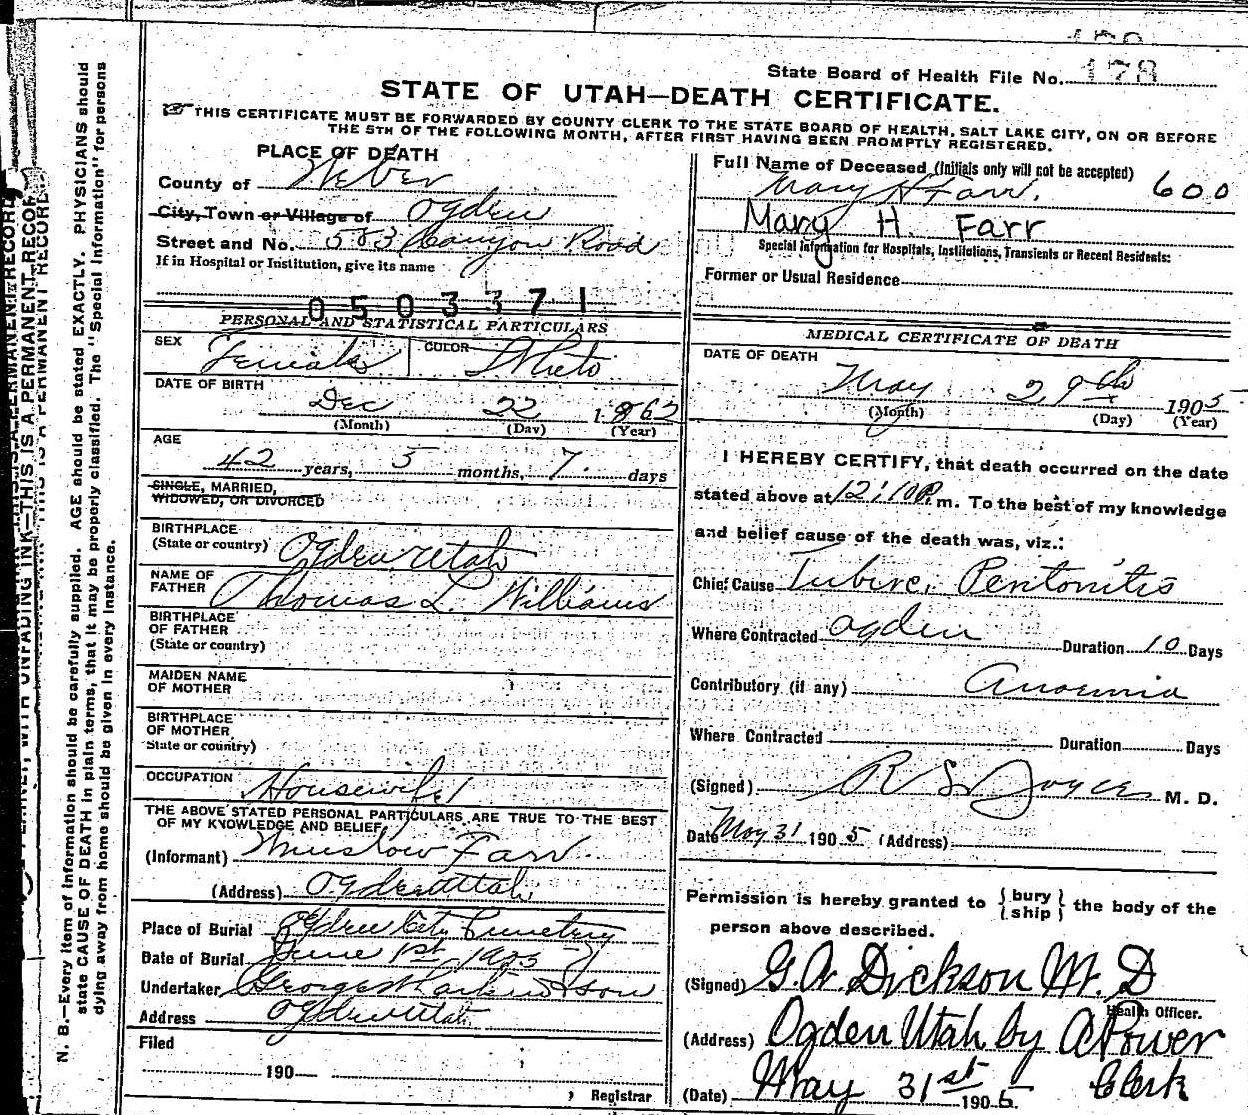 State Board of Health File No. 178
STATE OF UTAH—DEATH CERTIFICATE.
THIS CERTIFICATE MUST BE FORWARDED BY COUNTY CLERK TO THE STATE BOARD OF HEALTH, SALT LAKE CITY, ON OR BEFORE
THE 5TH OF THE FOLLOWING MONTH, AFTER FIRST HAVING BEEN PROMPTLY REGISTERED.
PLACE OF DEATH
County of Weber
City, Town or Village of Ogden
Street and No. 583 Canyon Road
If in Hospital or Institution, give its name
0503371
PERSONAL AND STATISTICAL PARTICULARS
SEX Female COLOR White
DATE OF BIRTH
Dec 22 1862
(Month) (Day) (Year)
AGE
42 years, 5 months, 7 days
SINGLE, MARRIED,
WIDOWED, OR DIVORCED
BIRTHPLACE
(State or country) Ogden Utah
NAME OF
FATHER Thomas L. Williams
BIRTHPLACE
OF FATHER
(State or country)
MAIDEN NAME
OF MOTHER
BIRTHPLACE
OF MOTHER
State or country)
OCCUPATION Housewife
THE ABOVE STATED PERSONAL PARTICULARS ARE TRUE TO THE BEST
OF MY KNOWLEDGE AND BELIEF
(Informant) Winslow Farr
(Address) Ogden Utah
Place of Burial Ogden City Cemetery
Date of Burial June 1st 1905
Undertaker George W Larkin & Son
Address Ogden Utah
Filed
190
Registrar
Full Name of Deceased (Initials only will not be accepted)
Mary H Farr. 600
Mary H. Farr
Special Information for Hospitals, Institutions, Transients or Recent Residents:
Former or Usual Residence
MEDICAL CERTIFICATE OF DEATH
DATE OF DEATH
May 29th 1905
(Month) (Day) (Year)
I HEREBY CERTIFY, that death occurred on the date
stated above at 12:10 P. m. To the best of my knowledge
and belief cause of the death was, viz.:
Chief Cause Tuberc. Peritonitis
Where Contracted Ogden Duration 10 Days
Contributory (if any) Anoemia
Where Contracted Duration Days
(Signed) R S Joyce M. D.
Date May 31 1905 (Address)
Permission is hereby granted to { bury } the body of the
{ ship }
person above described.
(Signed) G. W. Dickson M. D
Health Officer.
(Address) Ogden Utah by A Power
Clerk
(Date) May 31st 1905
N. B.—Every item of information should be carefully supplied. AGE should be stated EXACTLY. PHYSICIANS should
state CAUSE OF DEATH in plain terms, that it may be properly classified. The "Special Information" for persons
dying away from home should be given in every instance.
WITH UNFADING INK—THIS IS A PERMANENT RECORD